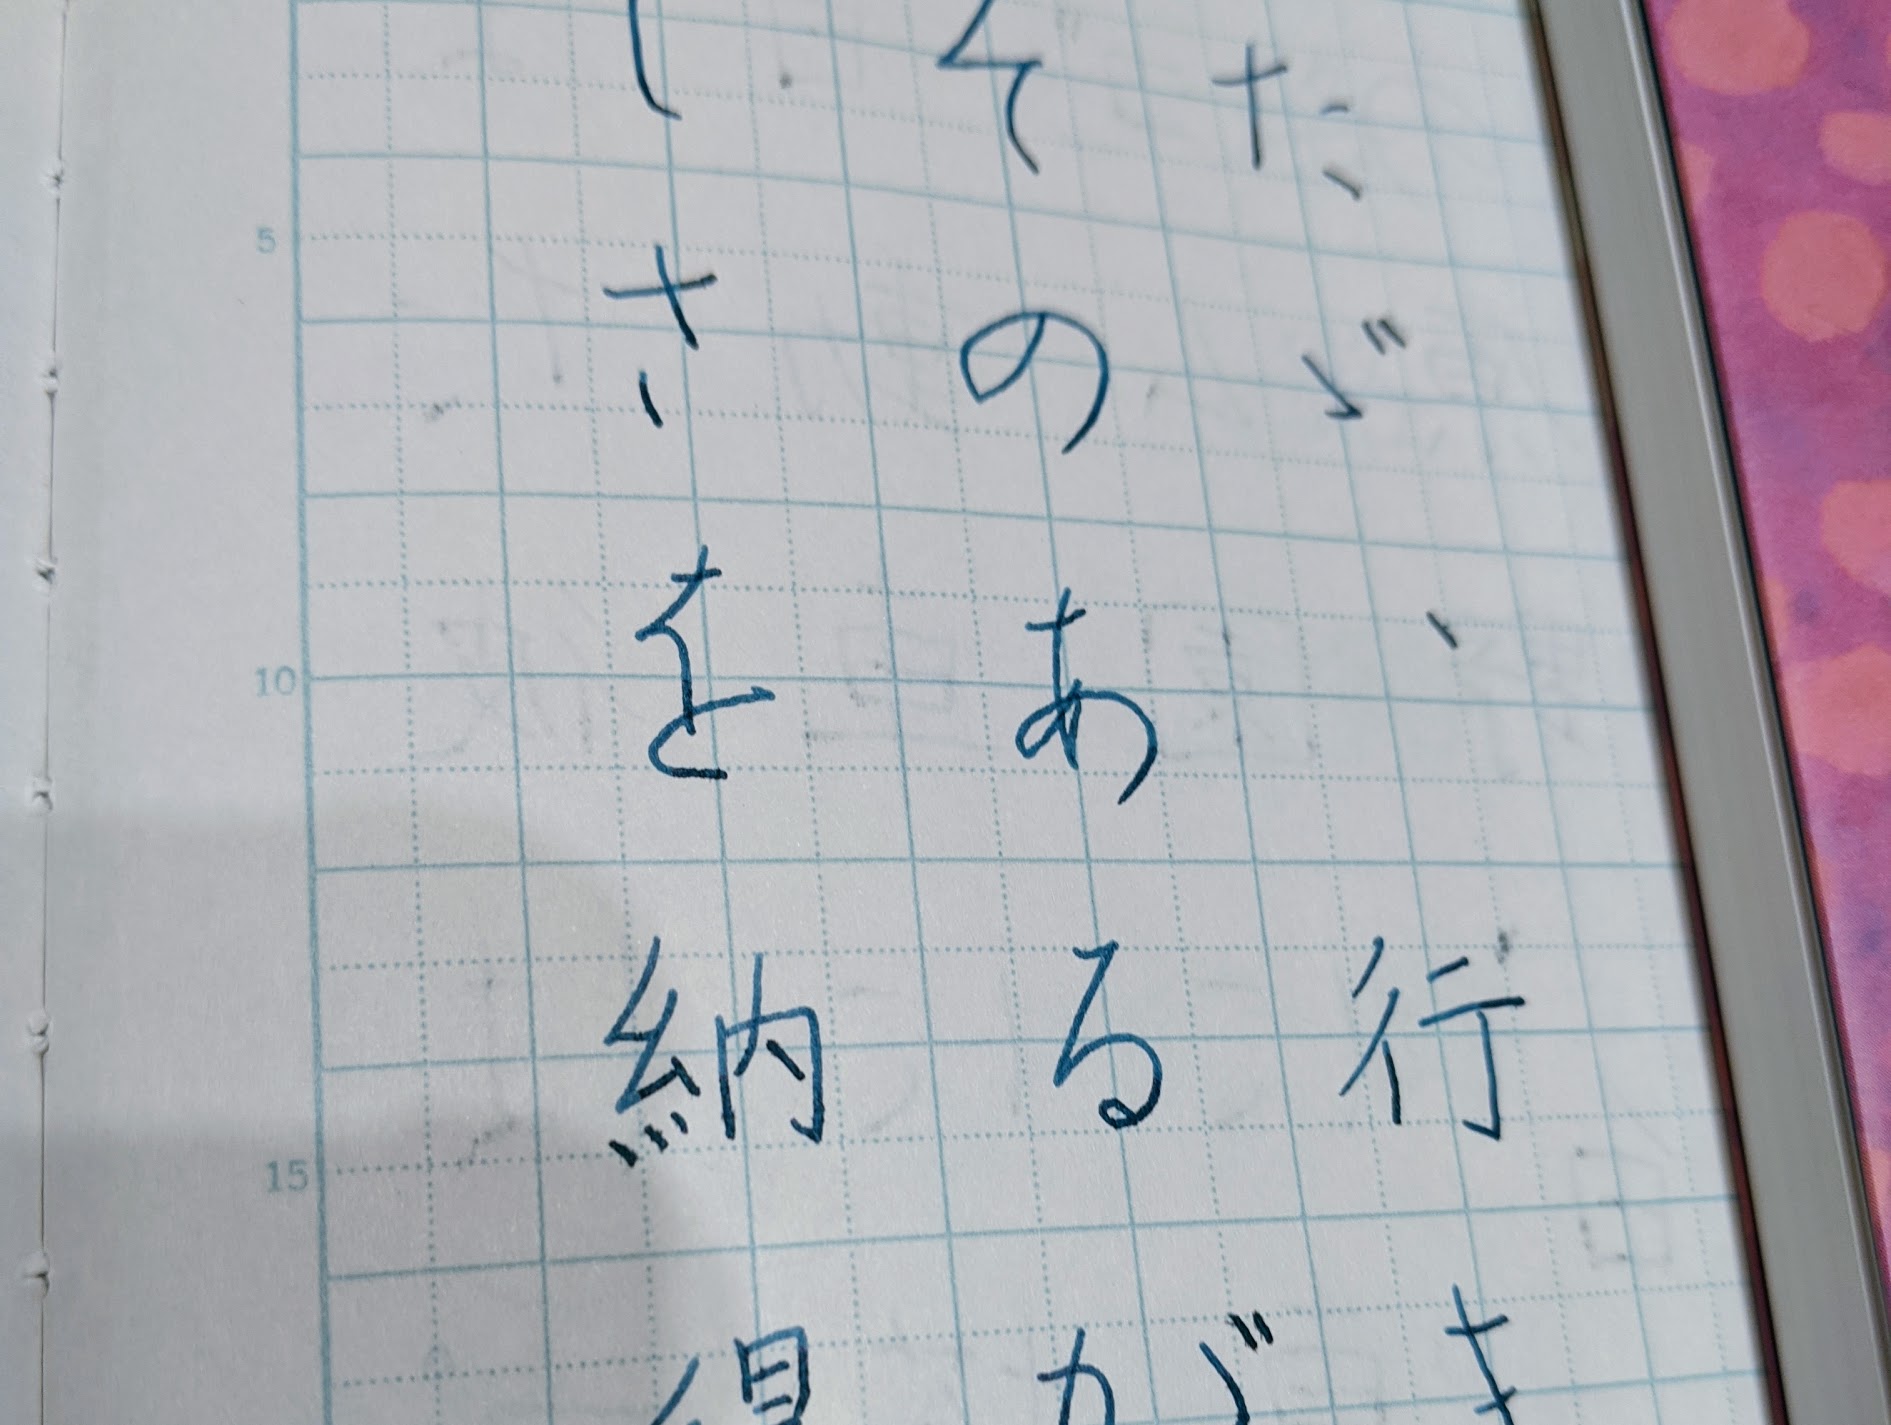 たゞ、行き
のあるが
さを納得
5
10
15